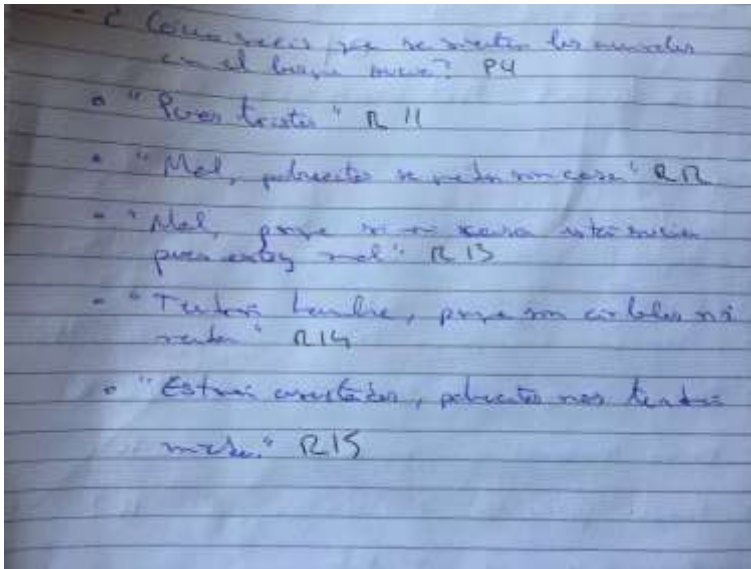 - ¿Como creéis que se sienten los animales
con el bosque ? P4
"Pues tristes" R 11
"Mal, pobrecitos se quedan sin casa" R12
"Mal, porque si mi casa está sucia
pues estoy mal". R 13
"Tendrán hambre, porque sin árboles no
" R14
"Estarán asustados, pobrecitos
miedo." R15